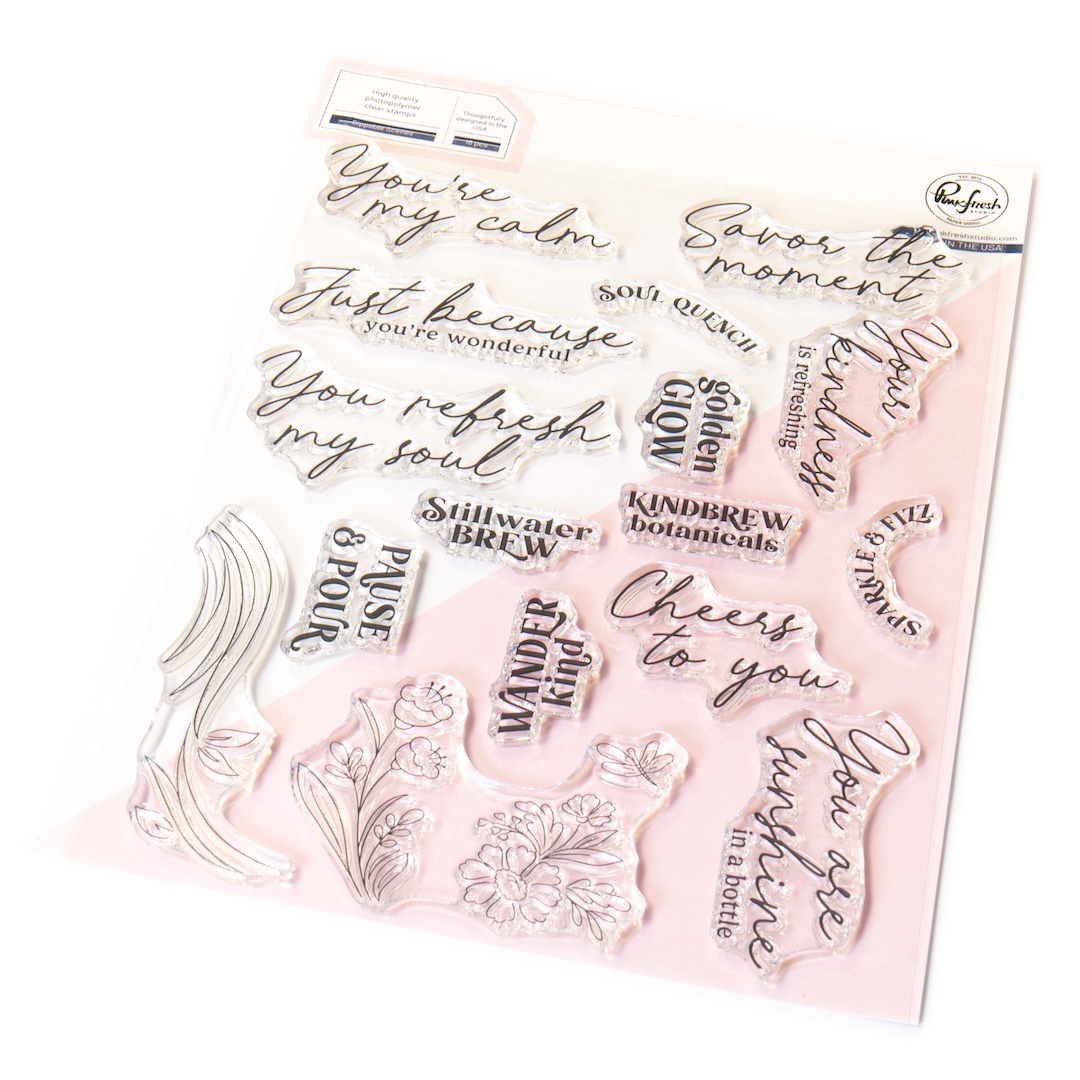 High quality
photopolymer
clear stamps
Sippable Scenes
Thoughtfully
designed in the
USA
16 pcs
EST. 2014
Pinkfresh
STUDIO
PAPER GOODS
nkfreshstudio.com
IN THE USA
You're
my calm
Savor the
moment
Just because
you're wonderful
SOUL QUENCH
Your
kindness
is refreshing
You refresh
my soul
golden
GLOW
Stillwater
BREW
KINDBREW
botanicals
SPARKLE & FIZZ
PAUSE
& POUR
WANDER
kind
Cheers
to you
You are
sunshine
in a bottle